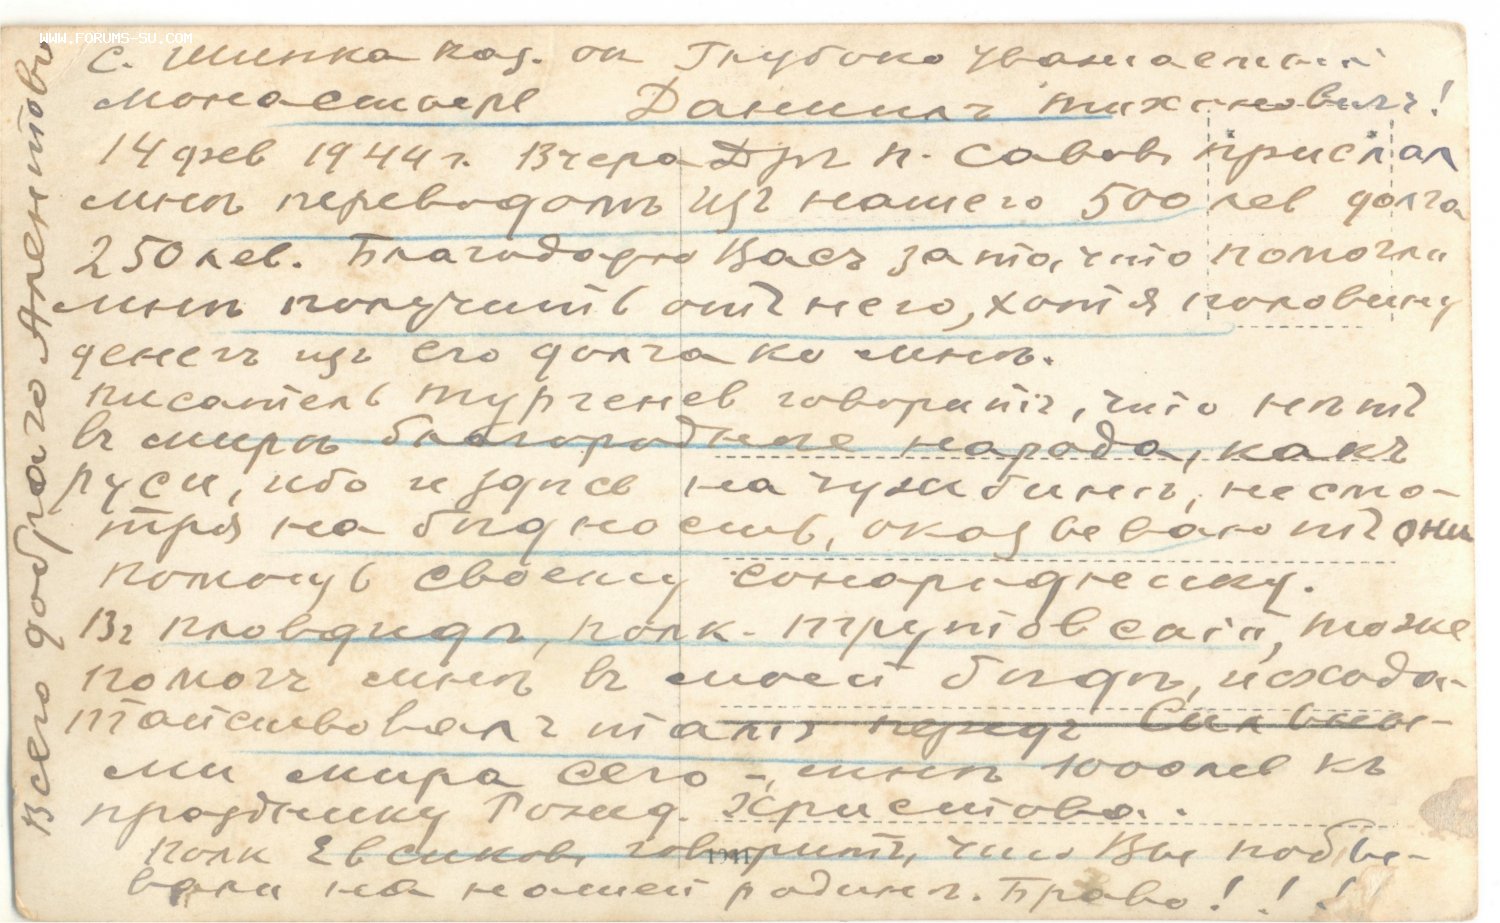 WWW.FORUMS-SU.COM
с. Шипка каз. ск Глубоко уважаемый
монастыре Даниилъ Тихоновичъ!
14 фев 1944 г. Вчера Д-ръ п. Савовъ прислал
мнѣ переводомъ изъ нашего 500 лев долга
250 лев. Благодарю Васъ за то, что помогли
мнѣ получить отъ него, хотя половину
денегъ изъ его долга ко мнѣ.
Писатель Тургенев говоритъ, что нѣтъ
въ мирѣ благороднѣе народа, какъ
руси, ибо и здѣсь на чужбинѣ, несмо-
тря на бѣдность, оказываютъ они
помощь своему сонароднику.
Въ Пловдивѣ, полк. Трутовскій, тоже
помогъ мнѣ въ моей бѣдѣ, исхода-
тайствовалъ тамъ передъ Сильны-
ми мира сего -, мнѣ 1000 лев къ
празднику Рожд. Христова.
Полк Евсиковъ говоритъ, что Вы побы-
вали на нашей родинѣ. Браво!!!
Всего добраго Алентовъ